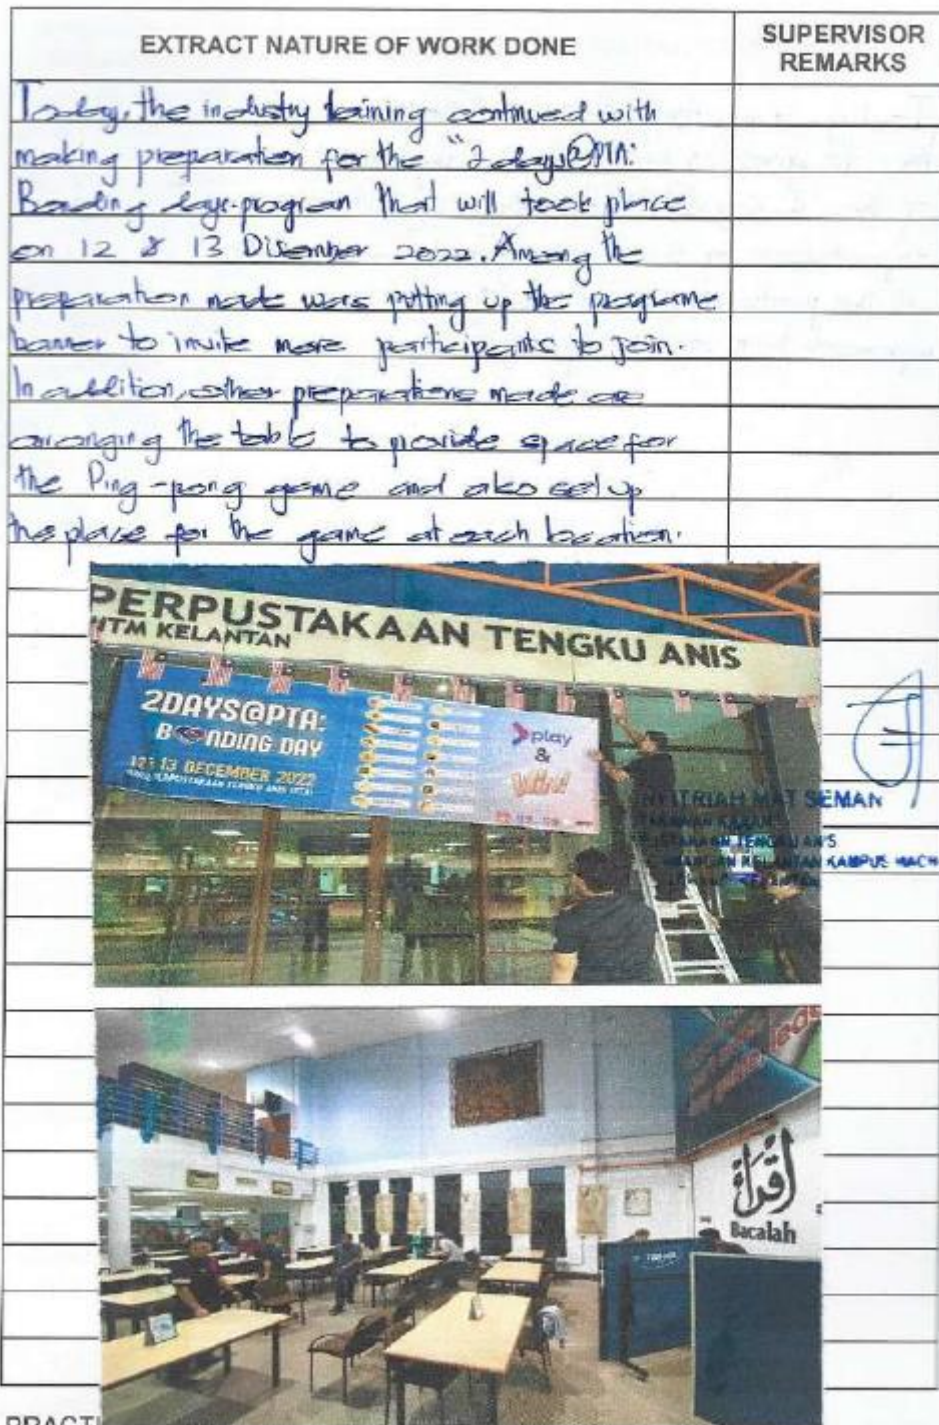 EXTRACT NATURE OF WORK DONE
SUPERVISOR
REMARKS
Today, the industry training continued with
making preparation for the "2days@PTA:
Bonding days-program that will took place
on 12 & 13 Disember 2022. Among the
preparation made was putting up the programe
banner to invite more participants to join.
In addition, other preparations made are
arranging the table to provide space for
the Ping-pong game and also set up
the place for the game at each location.
PERPUSTAKAAN TENGKU ANIS
UITM KELANTAN
2DAYS@PTA:
BONDING DAY
12-13 DECEMBER 2022
play
&
FITRIAH MAT SEMAN
TENGKU ANIS
KELANTAN KAMPUS MACH
اقرأ
Bacalah
PRACTI